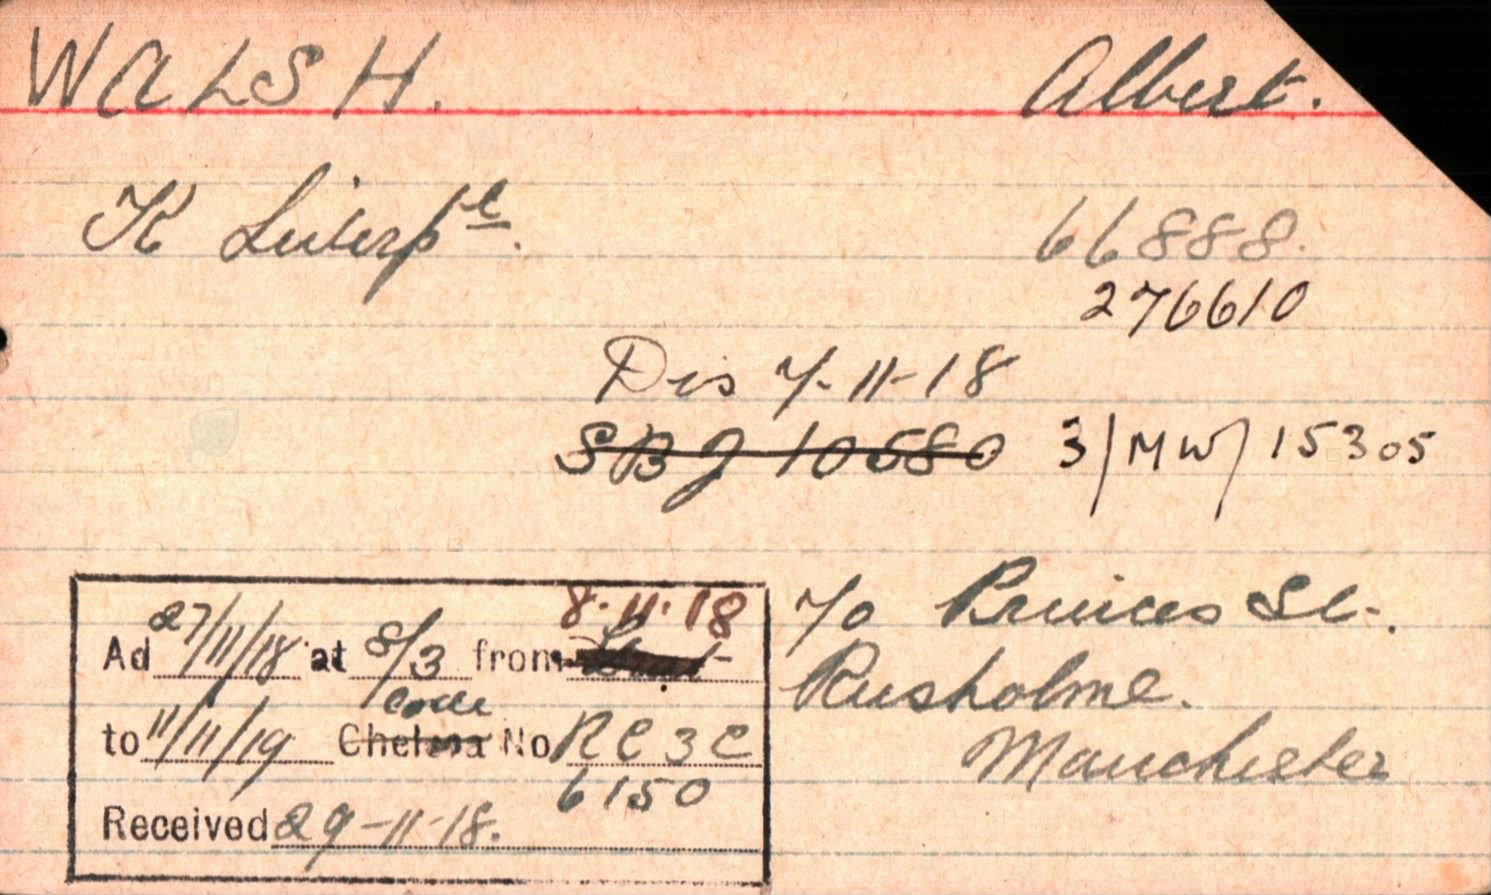 WALSH. Albert.
K Liverpl. 66888.
276610
Dis 7-11-18
SBJ 10580 3/MW/15305
8.11.18
Ad 27/11/18 at 8/3 from
Corr
to 11/11/19 Chelsea No RC3C
6150
Received 29-11-18.
7/0 Princes St.
Rusholme.
Manchester